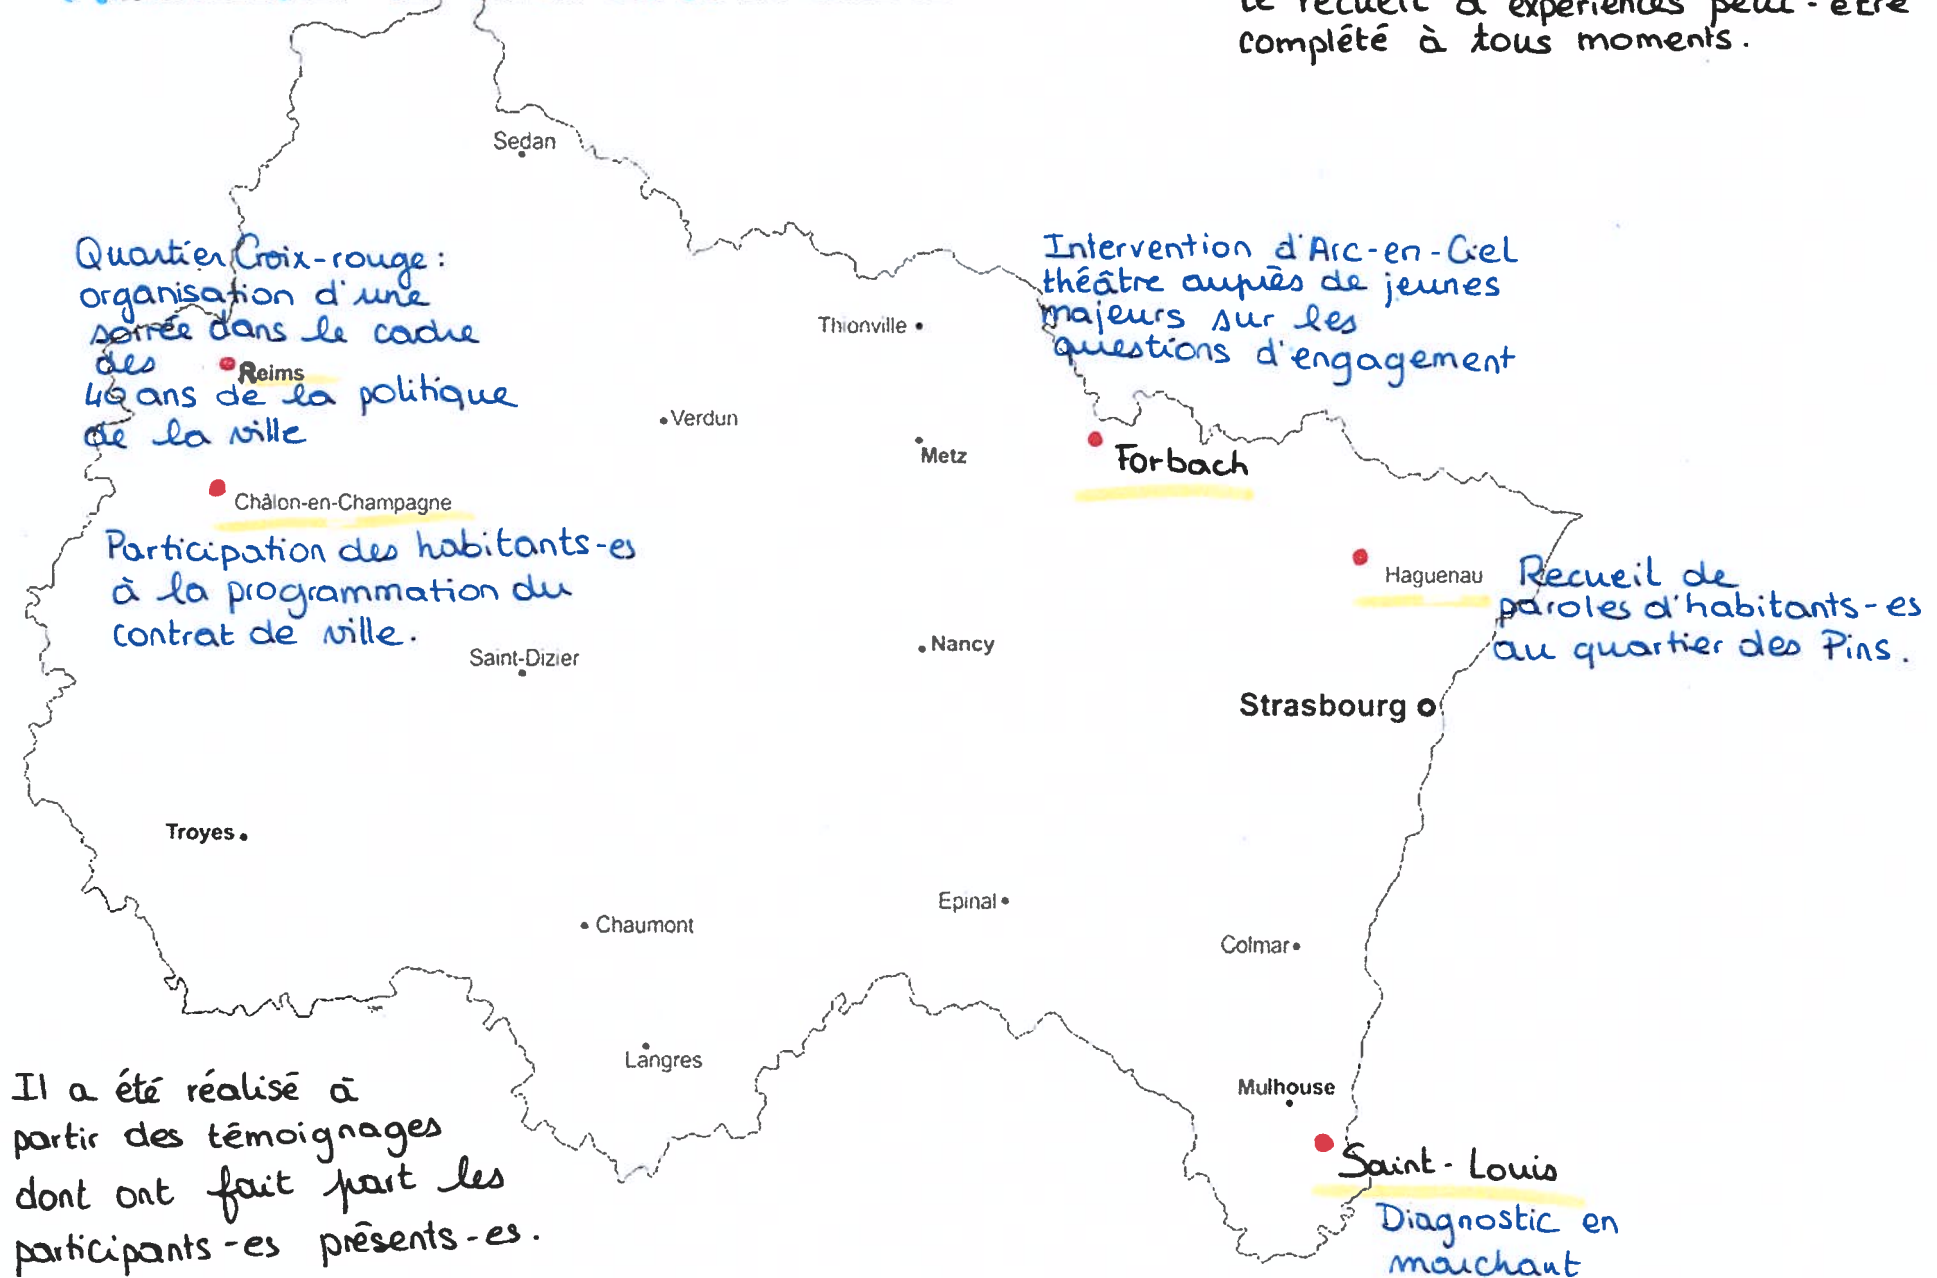 le recueil d'expériences peut-être
complété à tous moments.
Sedan
Quartier Croix-rouge :
organisation d'une
soirée dans le cadre
des
Reims
40 ans de la politique
de la ville
Intervention d'Arc-en-Ciel
théâtre auprès de jeunes
majeurs sur les
questions d'engagement
Thionville
Verdun
Metz
Forbach
Châlon-en-Champagne
Participation des habitants-es
à la programmation du
contrat de ville.
Haguenau
Recueil de
paroles d'habitants-es
au quartier des Pins.
Saint-Dizier
Nancy
Strasbourg
Troyes
Chaumont
Epinal
Colmar
Langres
Mulhouse
Saint-Louis
Diagnostic en
marchant
Il a été réalisé à
partir des témoignages
dont ont fait part les
participants-es présents-es.